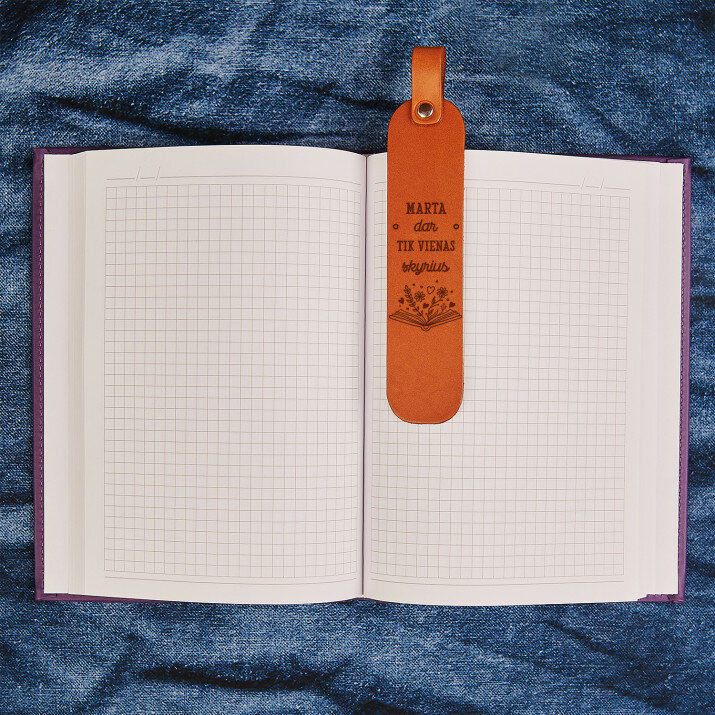 MARTA
dar
TIK VIENAS
skyrius